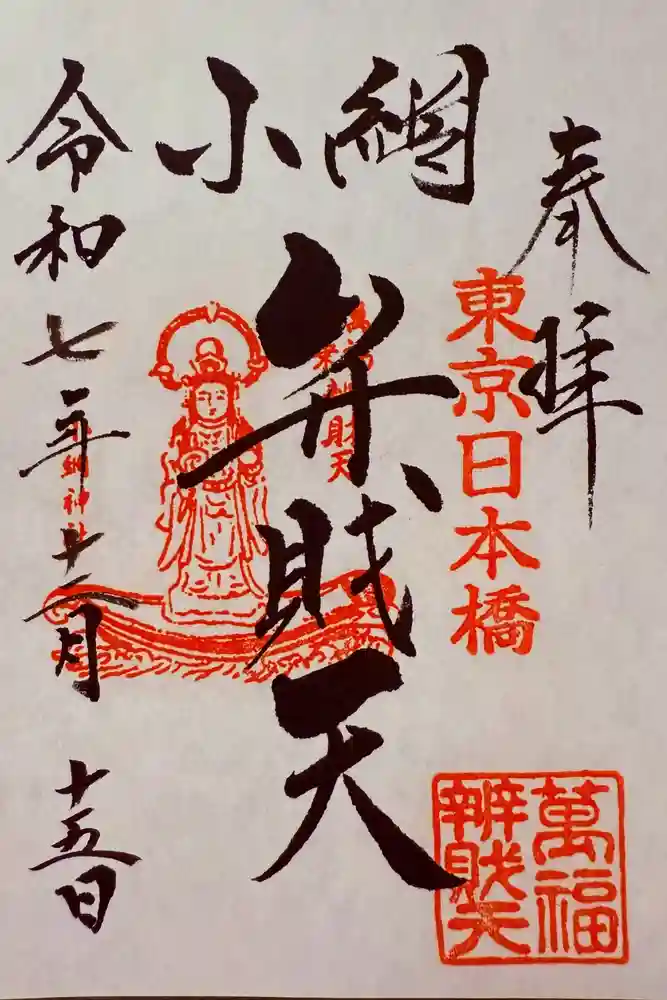 奉拝
東京日本橋
小網
弁財天
萬福
辨財天
小網神社
令和七年十二月十五日
萬福
辨財天